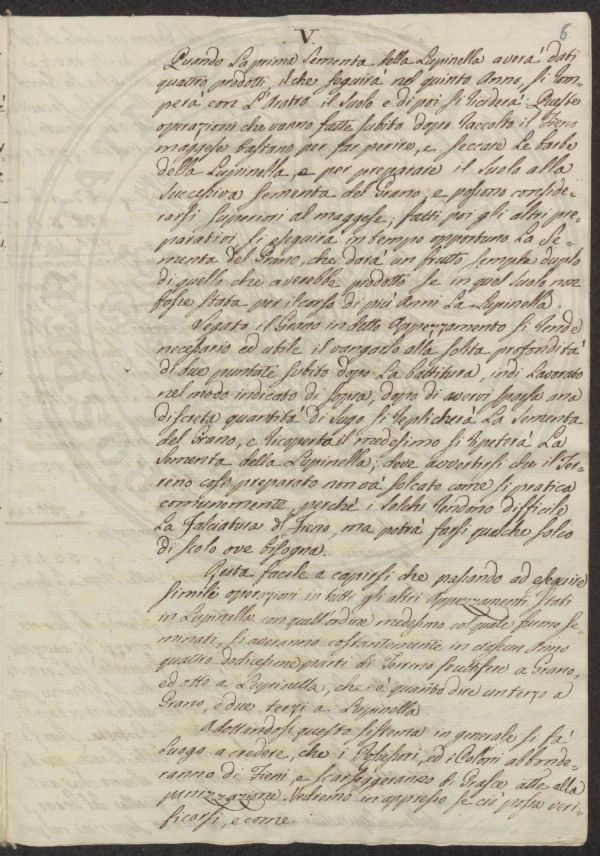 V.
6.
Quando La prima Sementa della Lupinella averà dati
quattro prodotti, il che seguirà nel quinto Anno, si Rom-
perà con L'Aratro il Suolo e di poi si riciderà: Queste
operazioni che vanno fatte subito dopo raccolto il Fieno
maggese bastano per far perire, e seccare Le barbe
della Lupinella, e per preparare il Suolo alla
successiva sementa del Grano, e possono conside-
rarsi superiori al maggese; fatti poi gli altri pre-
parativi si eseguirà in tempo opportuno La Se-
menta del Grano, che darà un frutto sempre duplo
di quello che averebbe prodotto se in quel Suolo non
fosse stata per il corso di più Anni La Lupinella.
Segato il Grano in detto Appezzamento si rende
necessario ed utile il vangarlo alla solita profondità
di due puntate subito dopo La battitura, indi Lavorato
nel modo indicato di sopra, dopo di avervi sparsa una
discreta quantità di sugo si replicherà La Sementa
del Grano, e ricoperto il medesimo si ripeterà La
Sementa della Lupinella; deve avvertirsi che il Ter-
reno così preparato non và solcato come si pratica
comunemente, perchè i Solchi rendono difficile
La Falciatura del Fieno, ma potrà farsi qualche solco
di scolo ove bisogna.
Resta facile a capirsi che passando ad eseguire
simili operazioni in tutti gli altri Appezzamenti stati
in Lupinella con quell'ordine medesimo col quale furono se-
minati, si averanno costantemente in ciascun Anno
quattro dodicesime parti di Terreno fruttifere a Grano,
ed otto a Lupinella, che è quanto dire un terzo a
Grano, e due terzi a Lupinella
Adottandosi questo sistema in generale si fà
Luogo a credere, che i Possessori, ed i Coloni abbonde-
ranno di Fieni, e scarseggeranno di Grasce atte alla
panizzazione. Vedremo in appresso se ciò possa veri-
ficarsi, e come.